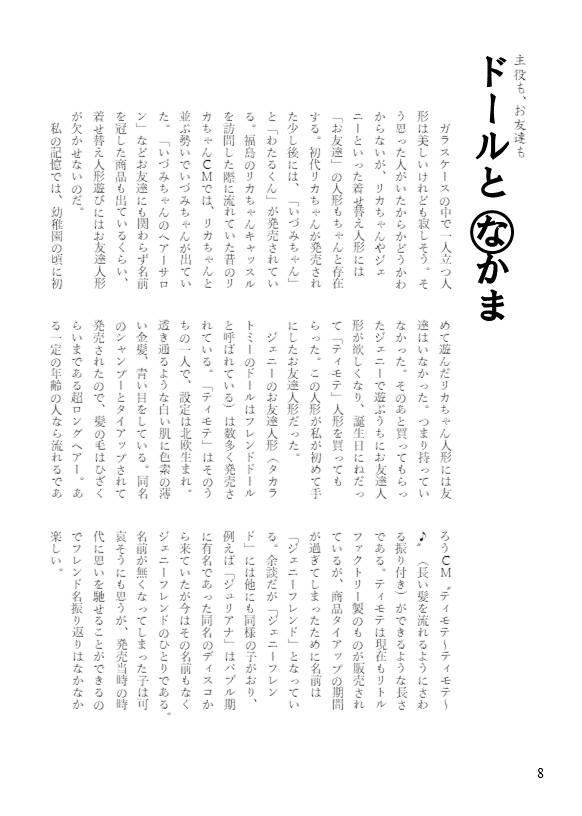 主役も、お友達も
ドールと なかま
ガラスケースの中で一人立つ人
形は美しいけれども寂しそう。そ
う思った人がいたからかどうかわ
からないが、リカちゃんやジェ
ニーといった着せ替え人形には
「お友達」の人形もちゃんと存在
する。初代リカちゃんが発売され
た少し後には、「いづみちゃん」
と「わたるくん」が発売されてい
る。福島のリカちゃんキャッスル
を訪問した際に流れていた昔のリ
カちゃんＣＭでは、リカちゃんと
並ぶ勢いでいづみちゃんが出てい
た。「いづみちゃんのヘアーサロ
ン」などお友達にも関わらず名前
を冠した商品も出ているくらい、
着せ替え人形遊びにはお友達人形
が欠かせないのだ。
私の記憶では、幼稚園の頃に初
めて遊んだリカちゃん人形には友
達はいなかった。つまり持ってい
なかった。そのあと買ってもらっ
たジェニーで遊ぶうちにお友達人
形が欲しくなり、誕生日にねだっ
て「ティモテ」人形を買っても
らった。この人形が私が初めて手
にしたお友達人形だった。
ジェニーのお友達人形（タカラ
トミーのドールはフレンドドール
と呼ばれている）は数多く発売さ
れている。「ティモテ」はそのう
ちの一人で、設定は北欧生まれ。
透き通るような白い肌に色素の薄
い金髪、青い目をしている。同名
のシャンプーとタイアップされて
発売されたので、髪の毛はひざく
らいまである超ロングヘアー。あ
る一定の年齢の人なら流れるであ
ろうＣＭ〝ティモテ〜ティモテ〜
♪〟（長い髪を流れるようにさわ
る振り付き）ができるような長さ
である。ティモテは現在もリトル
ファクトリー製のものが販売され
ているが、商品タイアップの期間
が過ぎてしまったために名前は
「ジェニーフレンド」となってい
る。余談だが「ジェニーフレン
ド」には他にも同様の子がおり、
例えば「ジュリアナ」はバブル期
に有名であった同名のディスコか
ら来ていたが今はその名前もなく
ジェニーフレンドのひとりである。
名前が無くなってしまった子は可
哀そうにも思うが、発売当時の時
代に思いを馳せることができるの
でフレンド名振り返りはなかなか
楽しい。
8